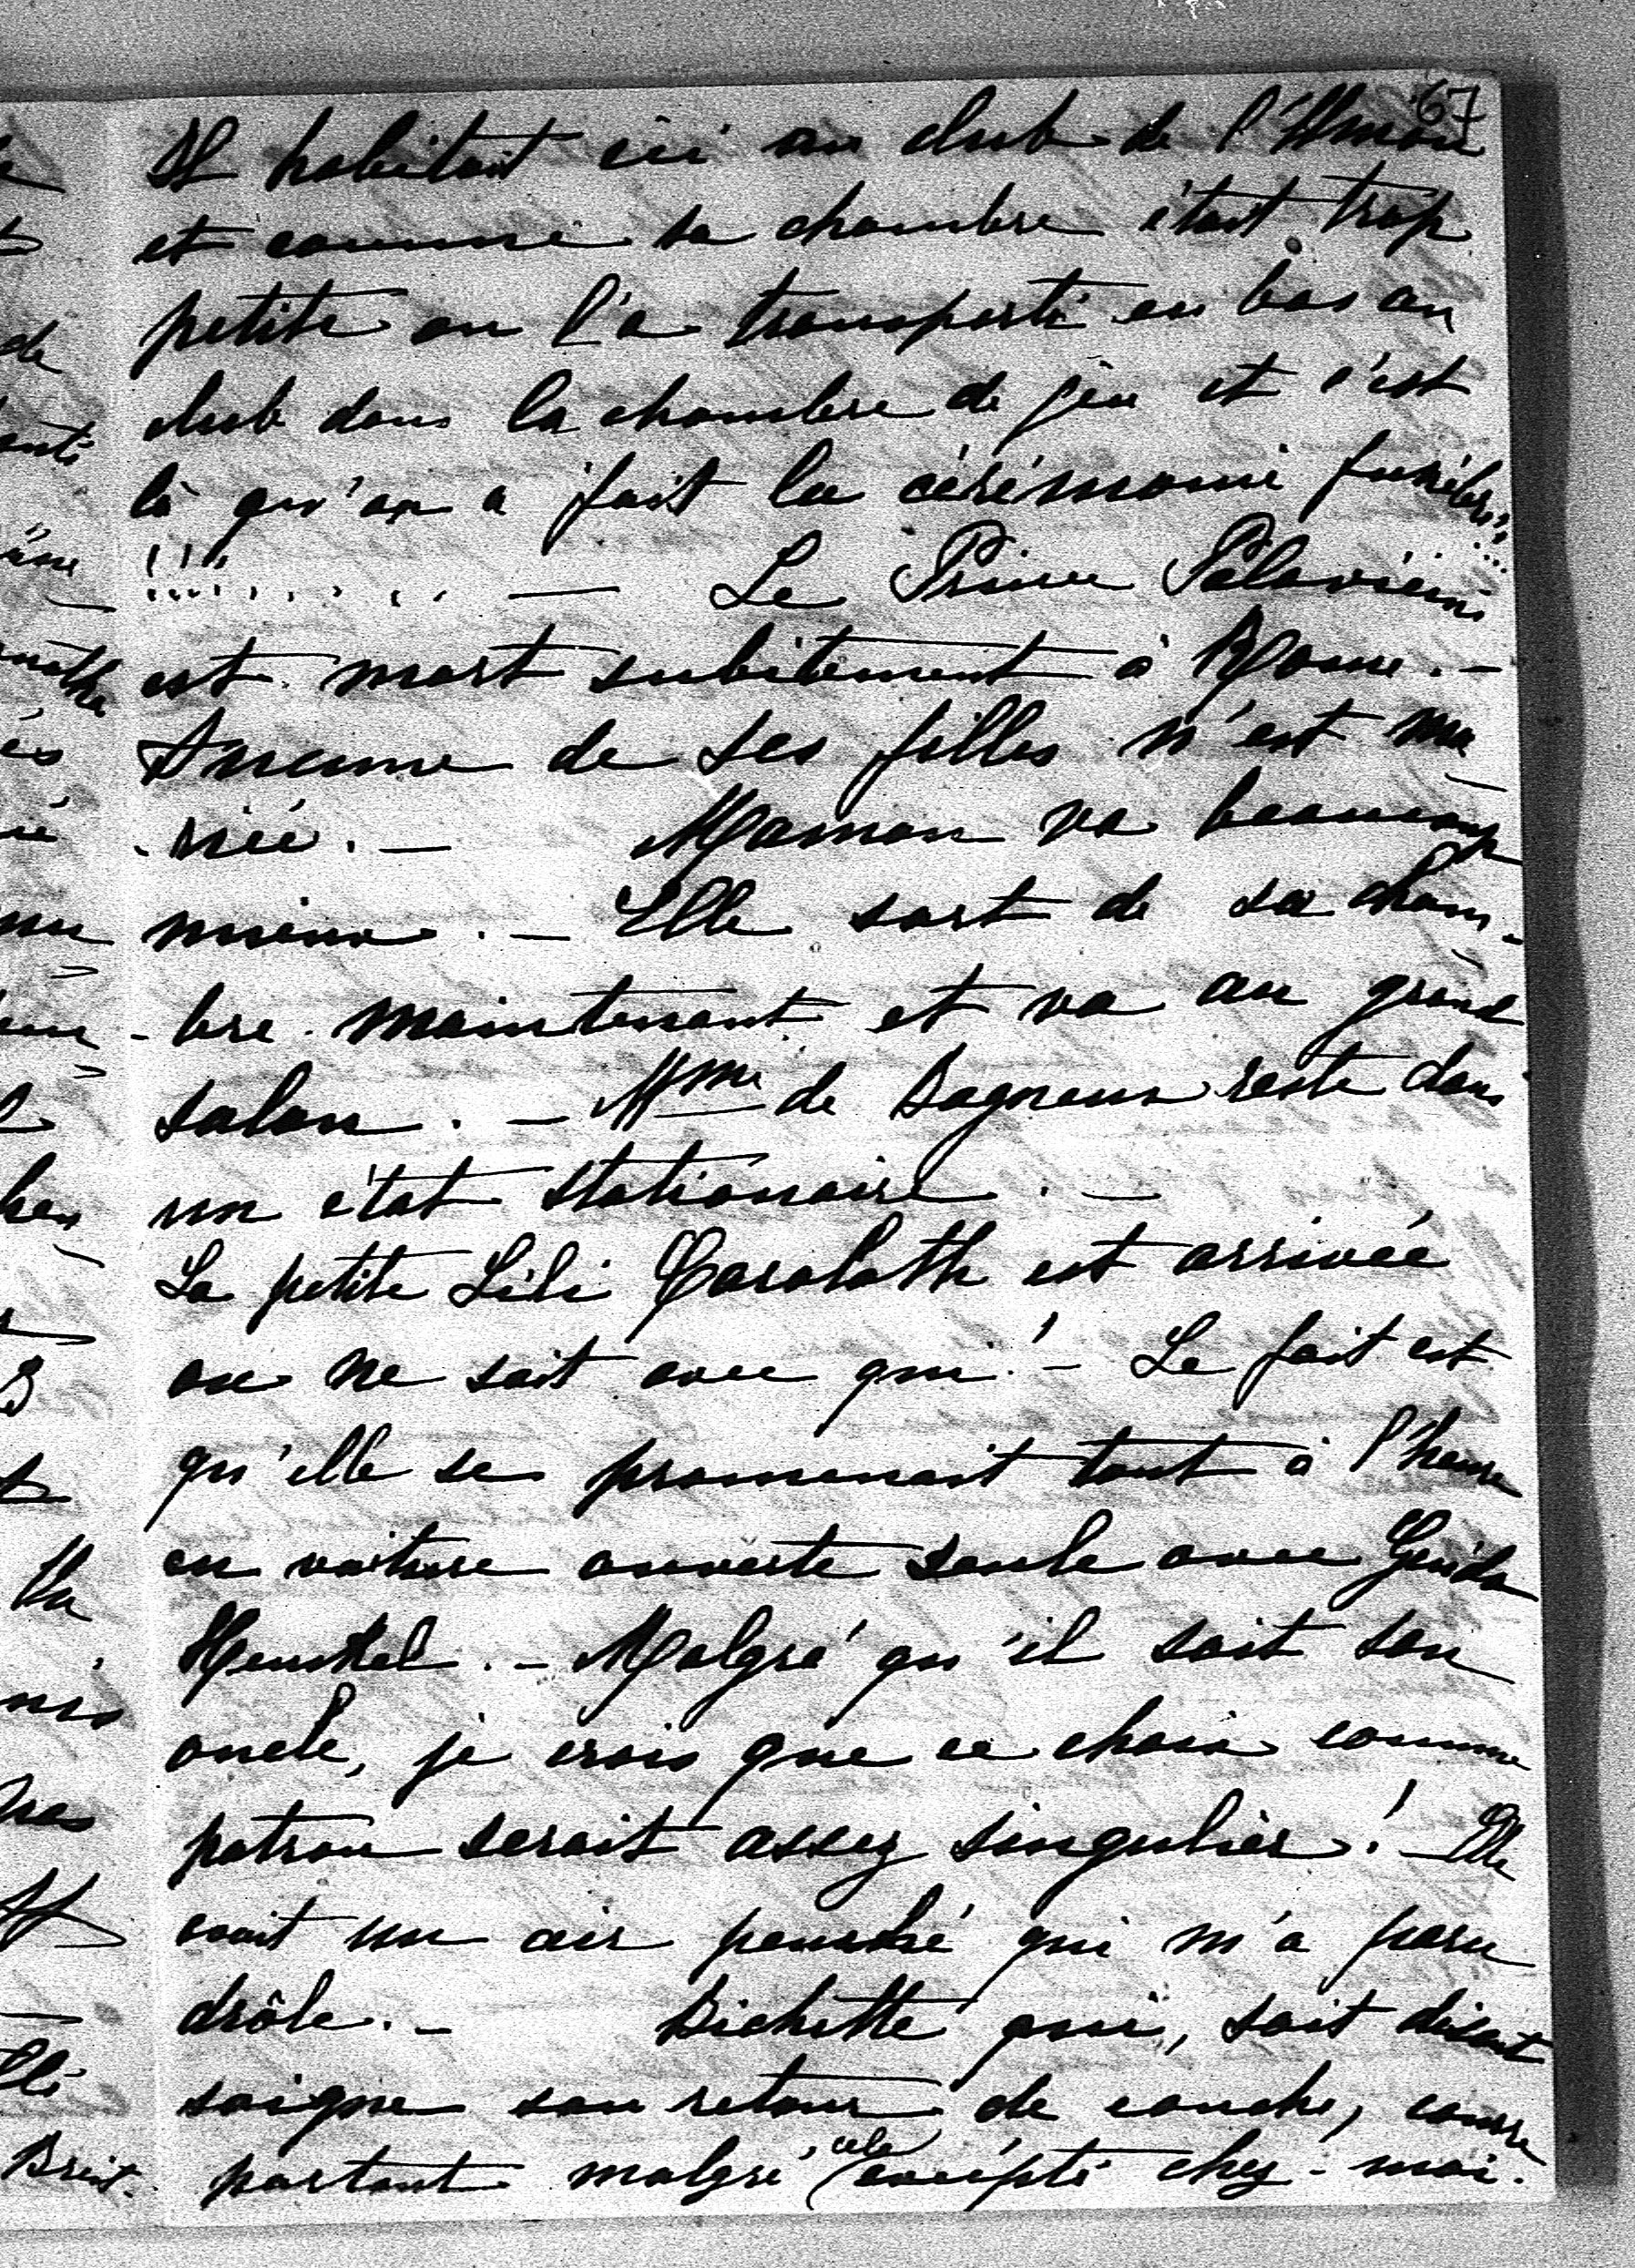 67
Il habitait ici au club de l'Union
et comme sa chambre était trop
petite on l'a transporté en bas au
club dans la chambre de jeu et c'est
là qu'on a fait la cérémonie funèbre!!
!!!....... — Le Prince Palavicini
est mort subitement à Rome. —
Aucune de ses filles n'est ma
-riée. — Maman va beaucoup
mieux. — Elle sort de sa cham-
-bre maintenant et va au grand
salon. — Mme de Bagneux reste dans
un état stationaire. —
La petite Lili Carolath est arrivée
on ne sait avec qui! — Le fait est
qu'elle se promenait tout à l'heure
en voiture ouverte seule avec Guido
Henckel. — Malgré qu'il soit son
oncle, je crois que ce choix comme
patron serait assez singulier! — Elle
avait un air penché qui m'a paru
drôle. — Bichette qui, soit disant
soigne son retour de couche, courre
partout malgré cela excépté chez-moi.